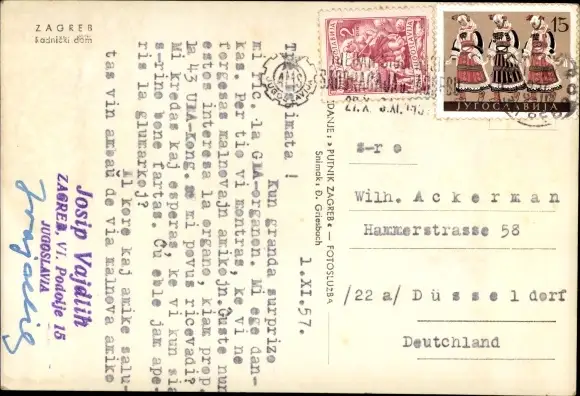 ZAGREB
Radnički dom
1.XI.57.
Tre estimata !
Kun granda surprizo
mi ric. la GMA-organon. Mi ege dan-
kas. Per tio vi montras, ke vi ne
forgesas malnovajn amikojn.Guste nun
estos interesa la organo, kiam prop.
la 43 UMA-Kong. Ĉu mi povus ricevadi?
Mi kredas kaj esperas, ke vi kun sia
s-rino bone fartas. Cu eble jam ape-
ris la glumarkoj?
Ĉl kore kaj amike salu-
tas vin ambaŭ de via malnova amiko
Josip Vajdlih
ZAGREB, VI. Podolje 15
JUGOSLAVIA
IZDANJE: »PUTNIK ZAGREB« — FOTOSLUŽBA
Snimak: Đ. Griesbach
2
15
ЈУГОСЛАВИЈА
s-ro
Wilh. Ackerman
Hammerstrasse 58
/22 a/ Düsseldorf
Deutchland